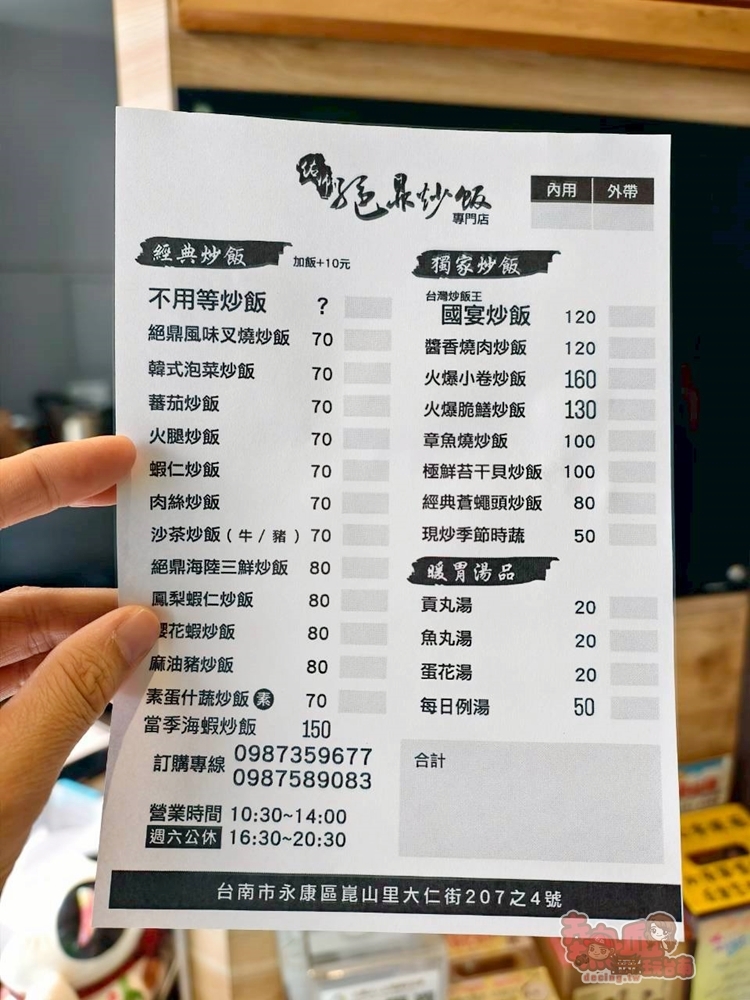 絕鼎炒飯
專門店
內用 外帶
經典炒飯 加飯+10元
不用等炒飯 ?
絕鼎風味叉燒炒飯 70
韓式泡菜炒飯 70
蕃茄炒飯 70
火腿炒飯 70
蝦仁炒飯 70
肉絲炒飯 70
沙茶炒飯(牛/豬) 70
絕鼎海陸三鮮炒飯 80
鳳梨蝦仁炒飯 80
櫻花蝦炒飯 80
麻油豬炒飯 80
素蛋什蔬炒飯 素 70
當季海蝦炒飯 150
訂購專線 0987359677
0987589083
營業時間 10:30~14:00
週六公休 16:30~20:30
獨家炒飯
台灣炒飯王
國宴炒飯 120
醬香燒肉炒飯 120
火爆小卷炒飯 160
火爆脆鱔炒飯 130
章魚燒炒飯 100
極鮮苔干貝炒飯 100
經典蒼蠅頭炒飯 80
現炒季節時蔬 50
暖胃湯品
貢丸湯 20
魚丸湯 20
蛋花湯 20
每日例湯 50
合計
台南市永康區崑山里大仁街207之4號